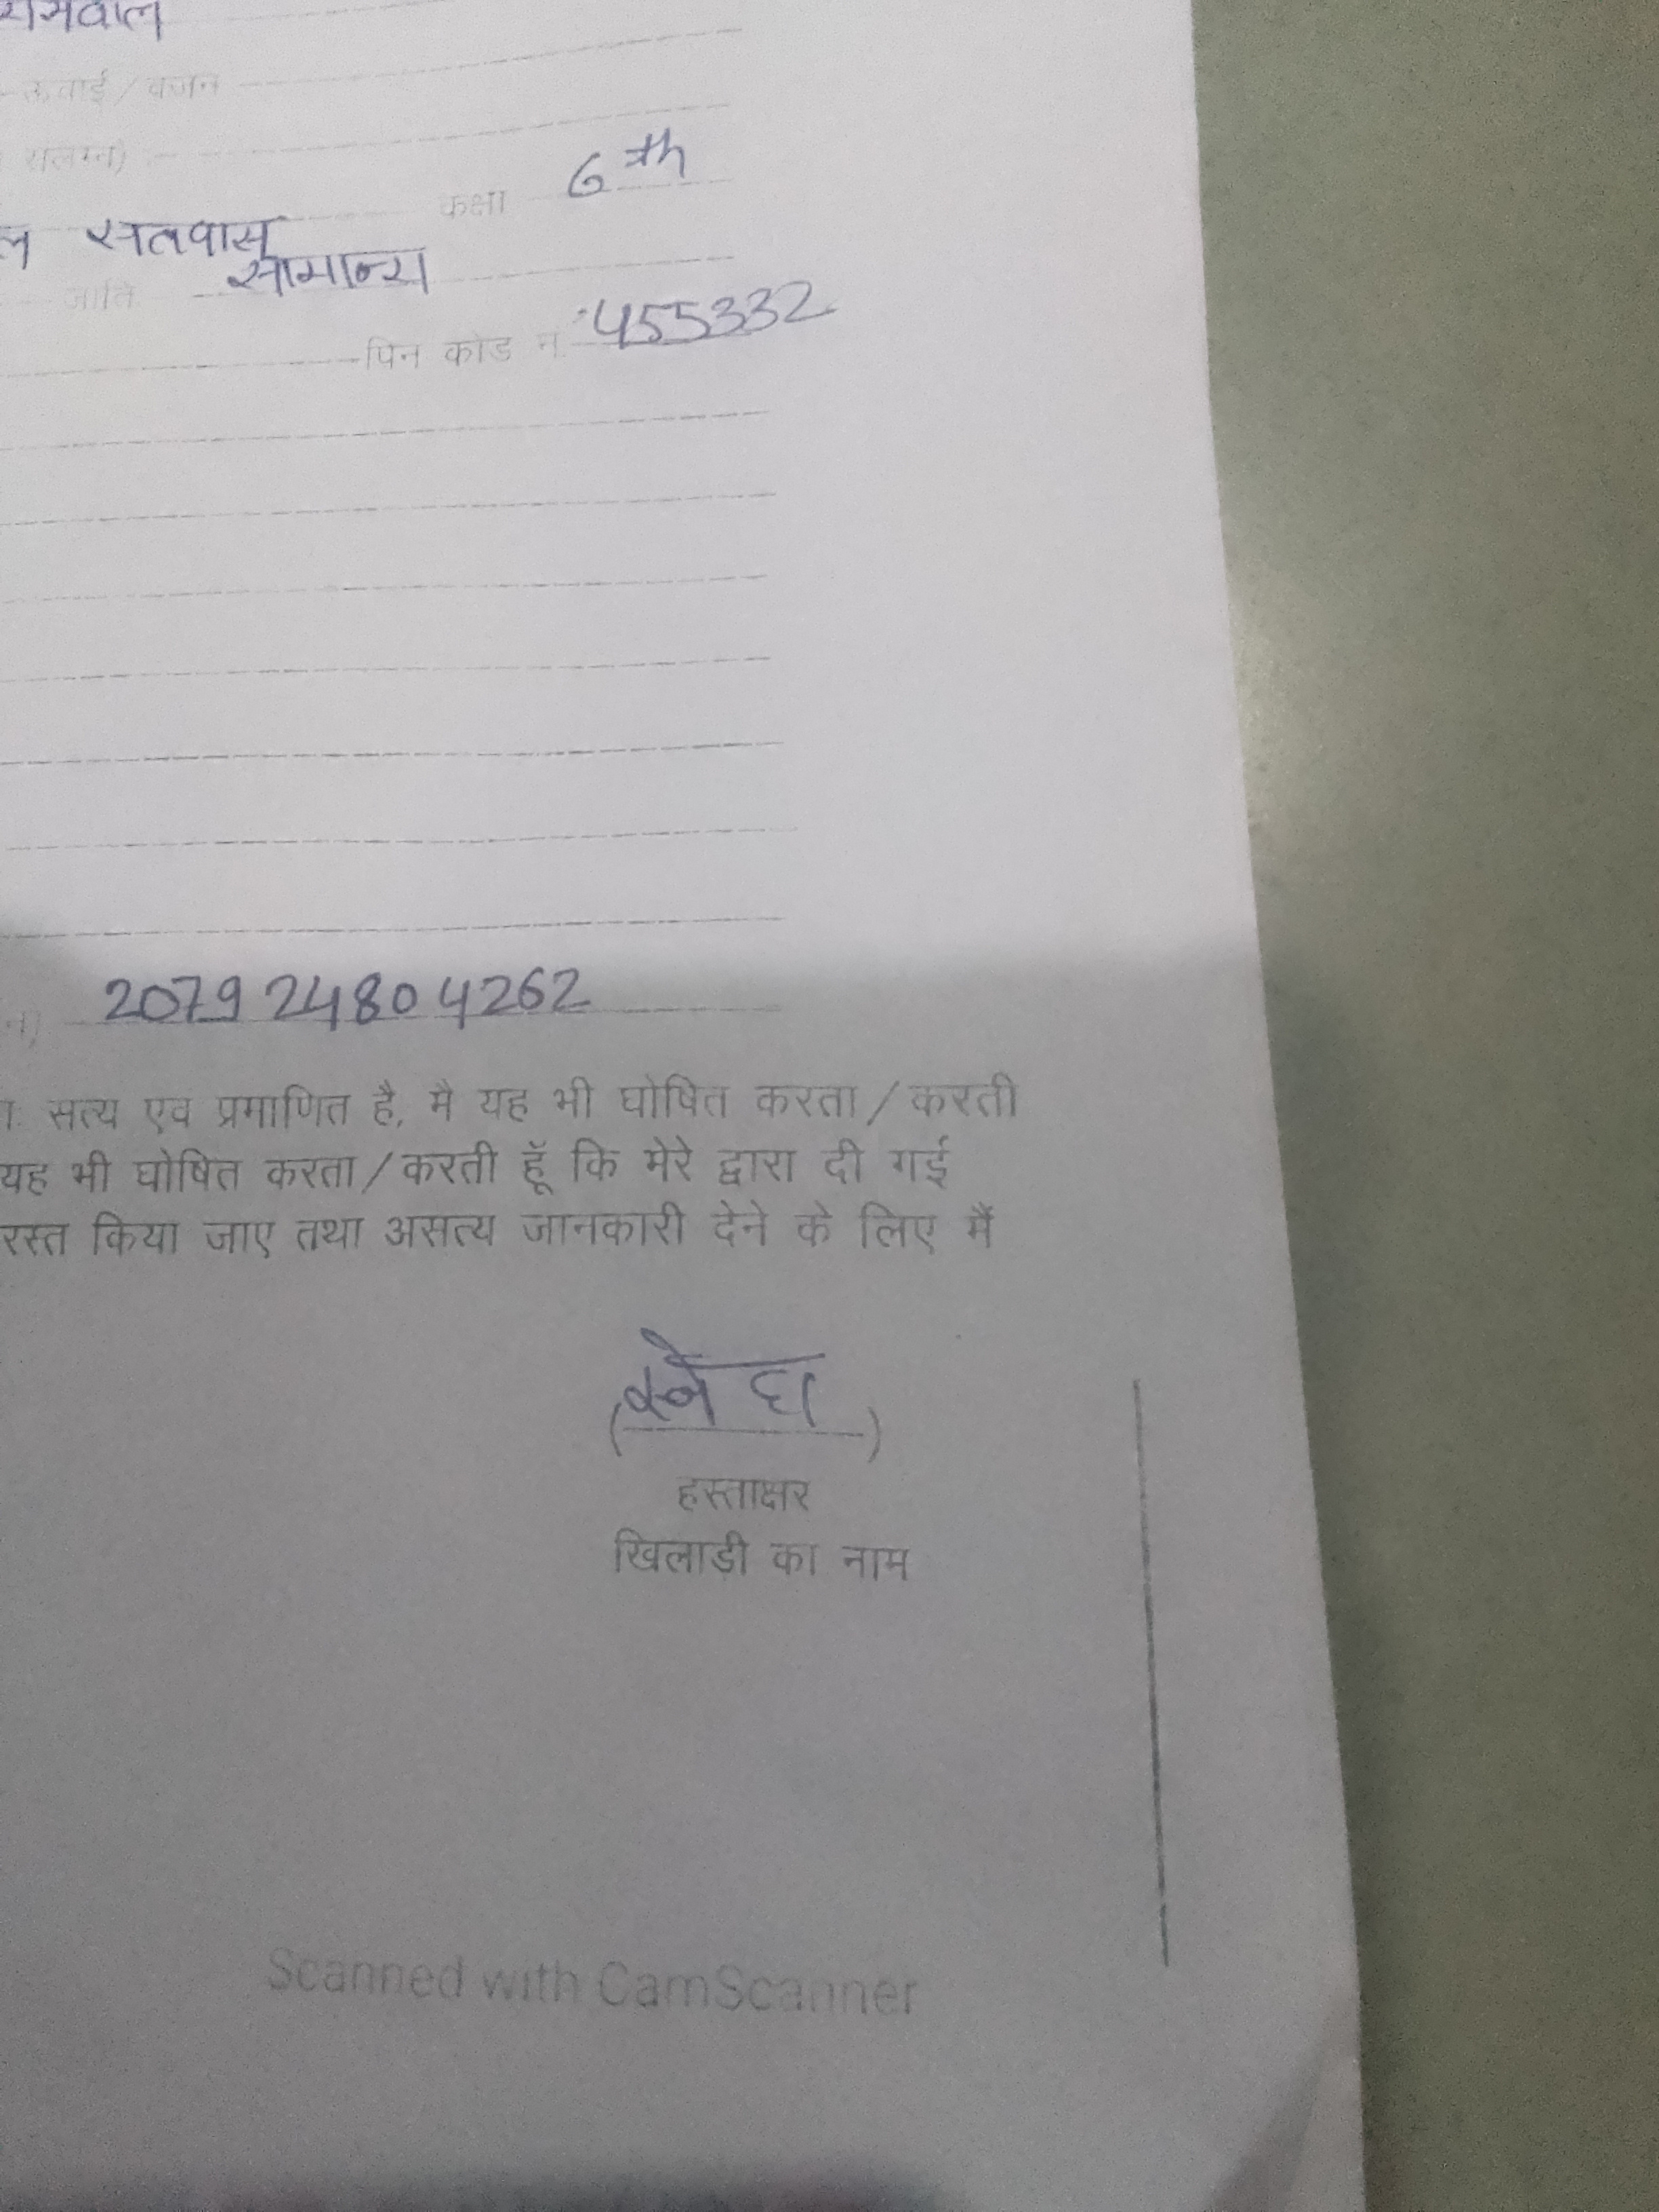 ऊचाई / वजन
सलग्न)
कक्षा 6th
ल सतवास
जाति सामान्य
पिन कोड न. 455332
न) 2079 2480 4262
सत्य एव प्रमाणित है, मै यह भी घोषित करता / करती
यह भी घोषित करता / करती हूँ कि मेरे द्वारा दी गई
रस्त किया जाए तथा असत्य जानकारी देने के लिए मैं
(स्नेहा)
हस्ताक्षर
खिलाडी का नाम
Scanned with CamScanner